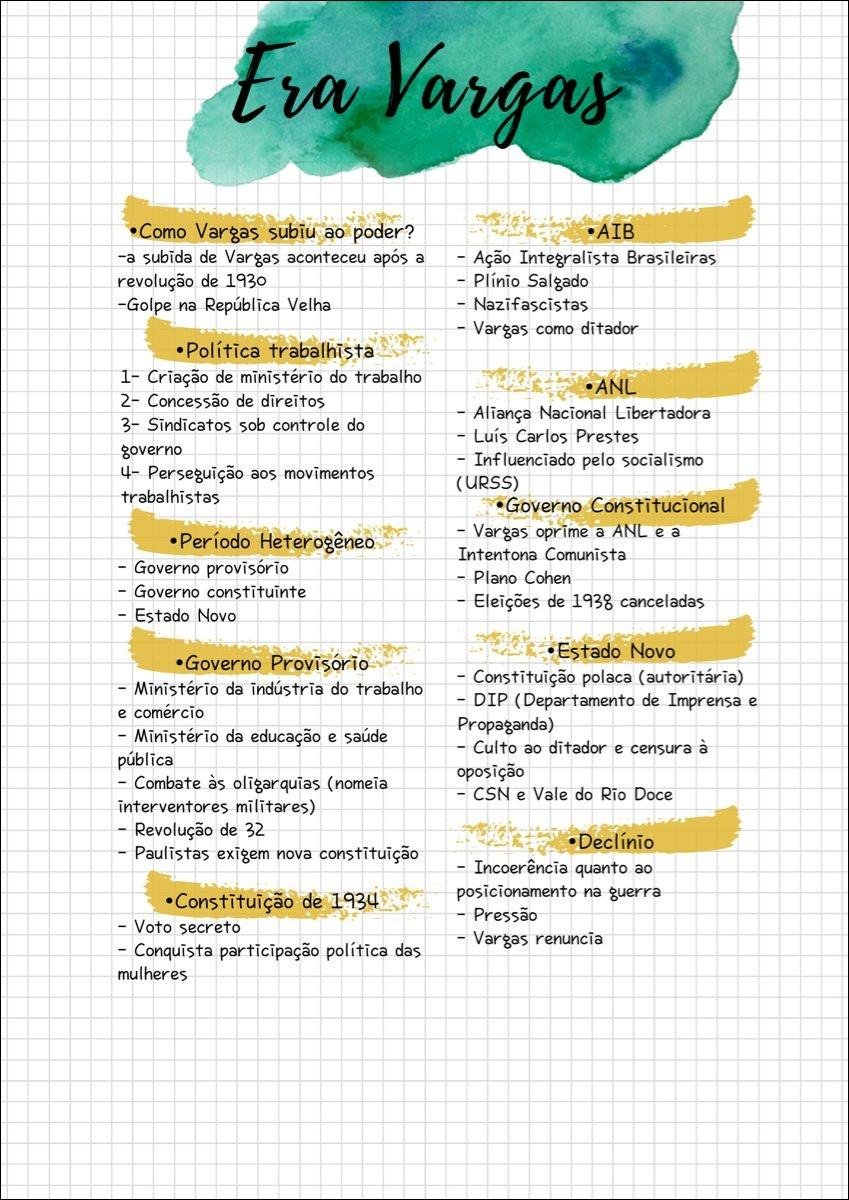 Era Vargas
•Como Vargas subiu ao poder?
-a subida de Vargas aconteceu após a
revolução de 1930
-Golpe na República Velha
•Política trabalhista
1- Criação de ministério do trabalho
2- Concessão de direitos
3- Sindicatos sob controle do
governo
4- Perseguição aos movimentos
trabalhistas
•Período Heterogêneo
- Governo provisório
- Governo constituinte
- Estado Novo
•Governo Provisório
- Ministério da indústria do trabalho
e comércio
- Ministério da educação e saúde
pública
- Combate às oligarquias (nomeia
interventores militares)
- Revolução de 32
- Paulistas exigem nova constituição
•Constituição de 1934
- Voto secreto
- Conquista participação política das
mulheres
•AIB
- Ação Integralista Brasileiras
- Plínio Salgado
- Nazifascistas
- Vargas como ditador
•ANL
- Aliança Nacional Libertadora
- Luís Carlos Prestes
- Influenciado pelo socialismo
(URSS)
•Governo Constitucional
- Vargas oprime a ANL e a
Intentona Comunista
- Plano Cohen
- Eleições de 1938 canceladas
•Estado Novo
- Constituição polaca (autoritária)
- DIP (Departamento de Imprensa e
Propaganda)
- Culto ao ditador e censura à
oposição
- CSN e Vale do Rio Doce
•Declínio
- Incoerência quanto ao
posicionamento na guerra
- Pressão
- Vargas renuncia